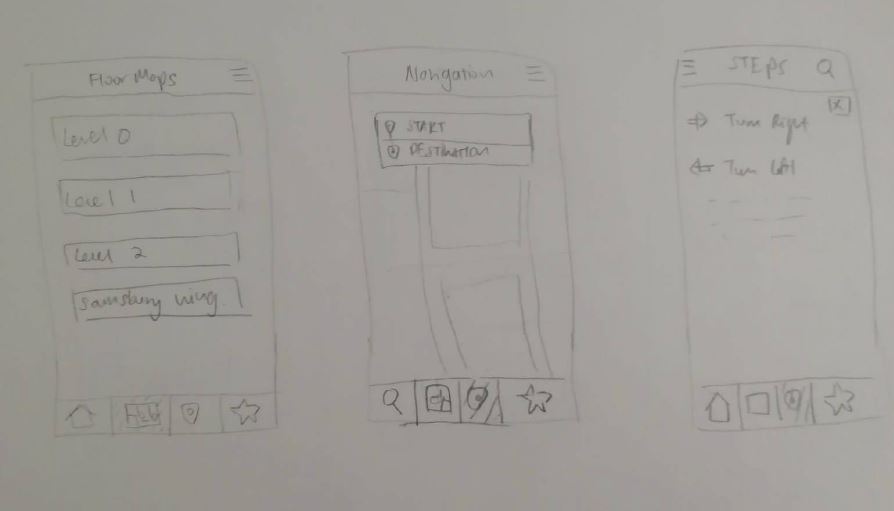 Floor Maps
Level 0
Level 1
Level 2
Samsbury wing
Navigation
START
DESTINATION
STEPS
X
Turn Right
Turn Left